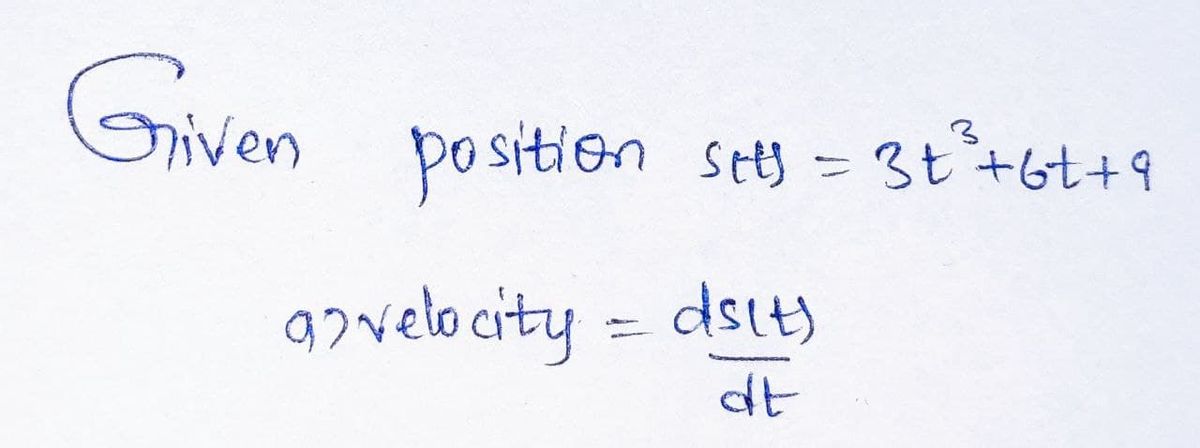 Given position s(t) = 3t³+6t+9
a) velocity = ds(t)
dt